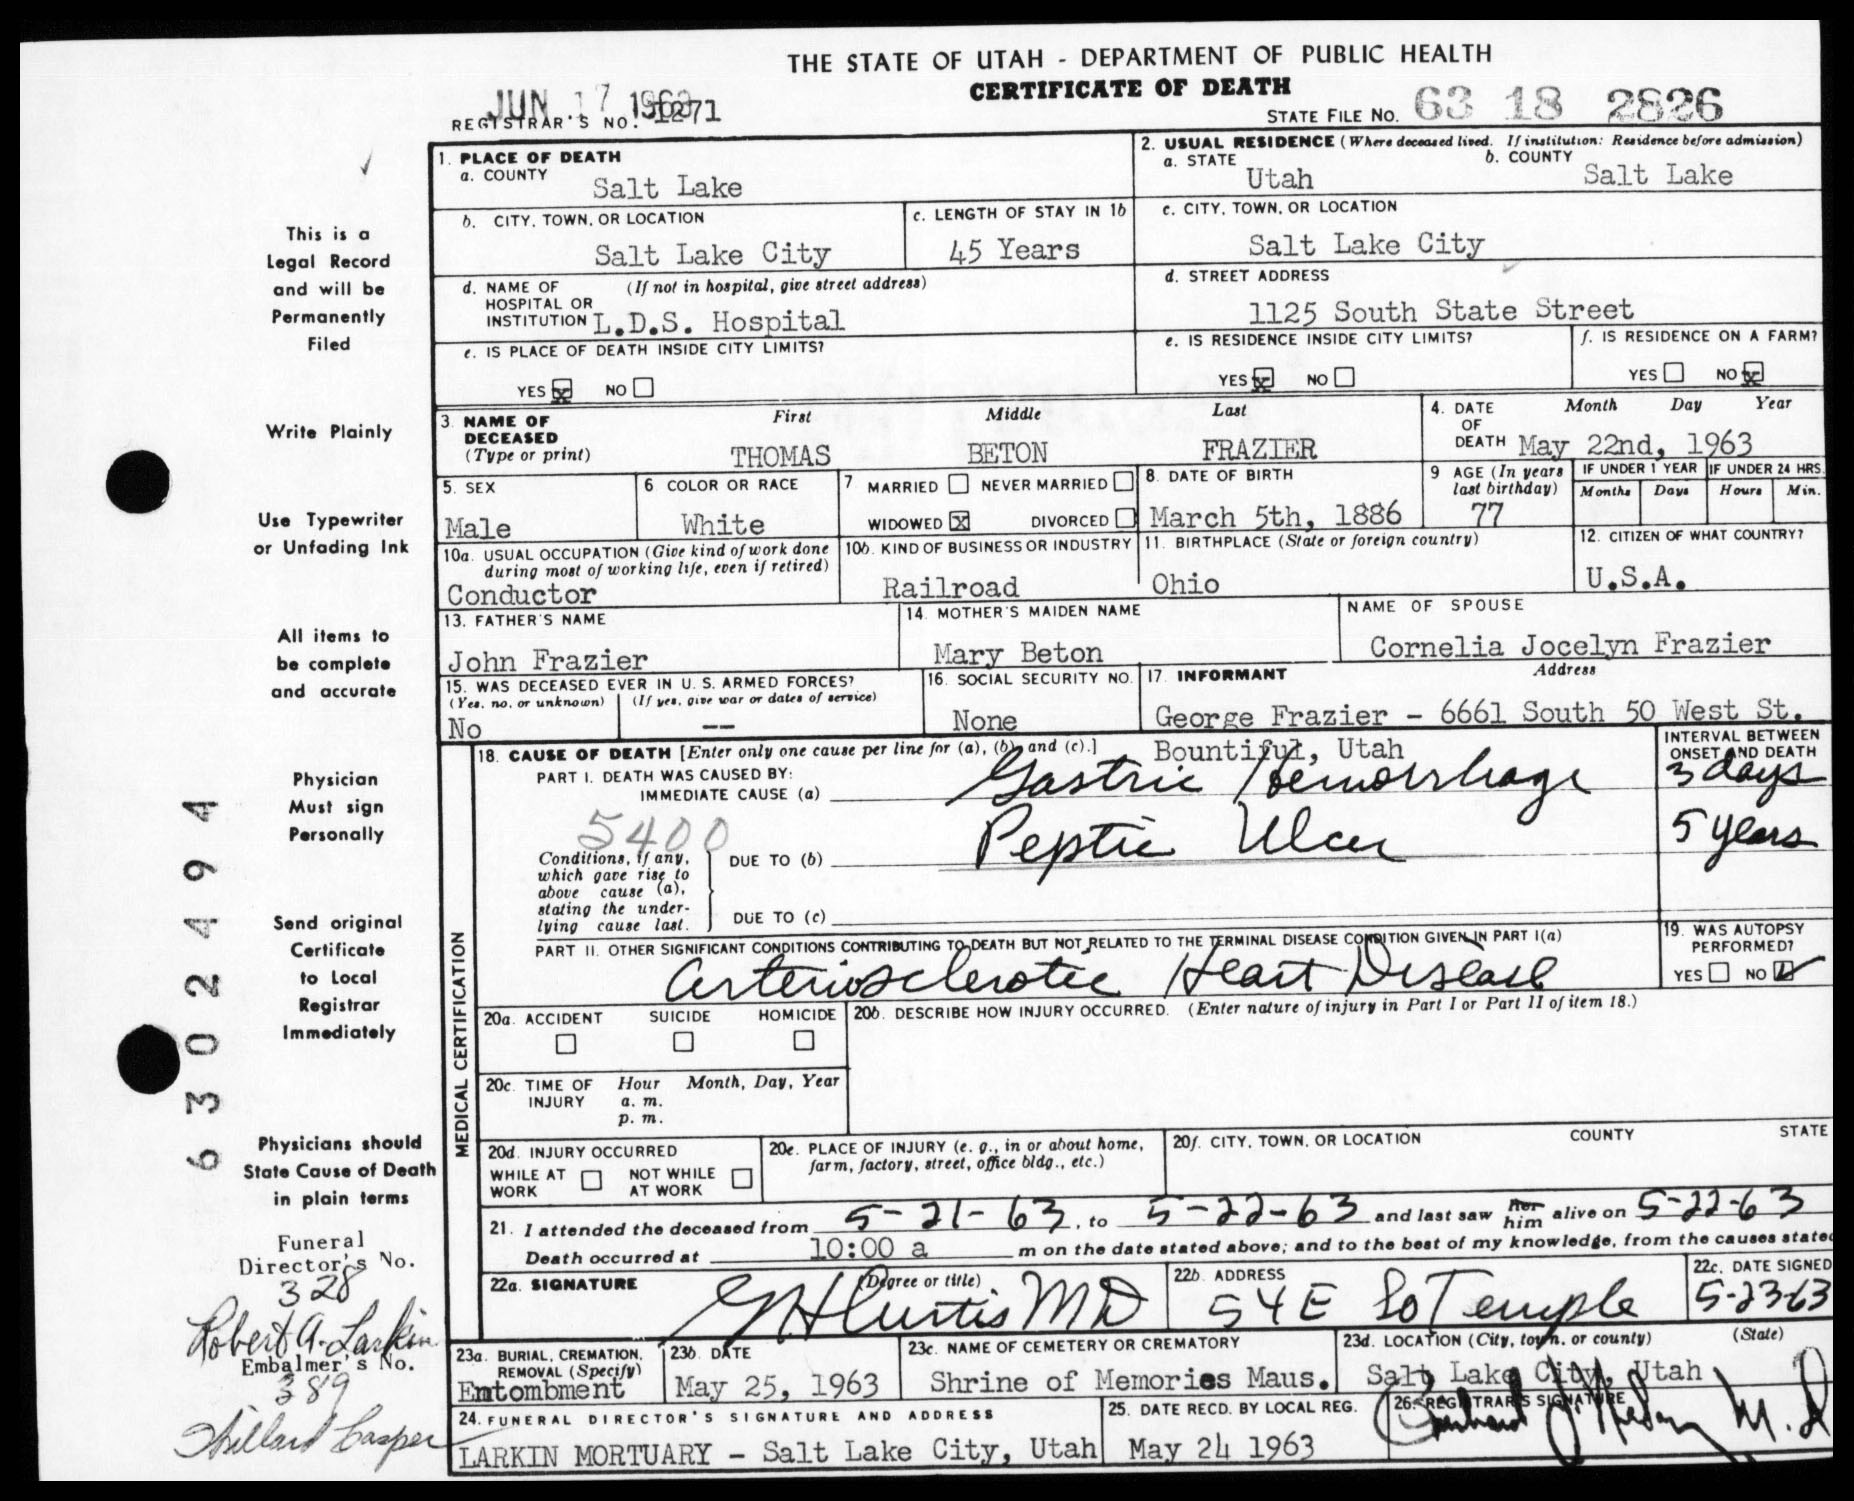 THE STATE OF UTAH - DEPARTMENT OF PUBLIC HEALTH
CERTIFICATE OF DEATH
JUN 17 1963
REGISTRAR'S NO. 1271
STATE FILE NO. 63 18 2826
1. PLACE OF DEATH
a. COUNTY
Salt Lake
2. USUAL RESIDENCE (Where deceased lived. If institution: Residence before admission)
a. STATE
Utah
b. COUNTY
Salt Lake
b. CITY, TOWN, OR LOCATION
Salt Lake City
c. LENGTH OF STAY IN 1b
45 Years
c. CITY, TOWN, OR LOCATION
Salt Lake City
d. NAME OF (If not in hospital, give street address)
HOSPITAL OR
INSTITUTION L.D.S. Hospital
d. STREET ADDRESS
1125 South State Street
e. IS PLACE OF DEATH INSIDE CITY LIMITS?
YES x NO
e. IS RESIDENCE INSIDE CITY LIMITS?
YES x NO
f. IS RESIDENCE ON A FARM?
YES NO x
3. NAME OF
DECEASED
(Type or print)
First Middle Last
THOMAS BETON FRAZIER
4. DATE
OF
DEATH
Month Day Year
May 22nd, 1963
5. SEX
Male
6 COLOR OR RACE
White
7 MARRIED NEVER MARRIED
WIDOWED x DIVORCED
8. DATE OF BIRTH
March 5th, 1886
9 AGE (In years
last birthday)
77
IF UNDER 1 YEAR
Months Days
IF UNDER 24 HRS.
Hours Min.
10a. USUAL OCCUPATION (Give kind of work done
during most of working life, even if retired)
Conductor
10b. KIND OF BUSINESS OR INDUSTRY
Railroad
11. BIRTHPLACE (State or foreign country)
Ohio
12. CITIZEN OF WHAT COUNTRY?
U.S.A.
13. FATHER'S NAME
John Frazier
14. MOTHER'S MAIDEN NAME
Mary Beton
NAME OF SPOUSE
Cornelia Jocelyn Frazier
15. WAS DECEASED EVER IN U. S. ARMED FORCES?
(Yes, no, or unknown) (If yes, give war or dates of service)
No --
16. SOCIAL SECURITY NO.
None
17. INFORMANT Address
George Frazier - 6661 South 50 West St.
Bountiful, Utah
MEDICAL CERTIFICATION
18. CAUSE OF DEATH [Enter only one cause per line for (a), (b), and (c).]
INTERVAL BETWEEN
ONSET AND DEATH
PART I. DEATH WAS CAUSED BY:
IMMEDIATE CAUSE (a) Gastric Hemorrhage 3 days
5400
Conditions, if any,
which gave rise to
above cause (a),
stating the under-
lying cause last.
DUE TO (b) Peptic Ulcer 5 years
DUE TO (c)
PART II. OTHER SIGNIFICANT CONDITIONS CONTRIBUTING TO DEATH BUT NOT RELATED TO THE TERMINAL DISEASE CONDITION GIVEN IN PART I(a)
Arteriosclerotic Heart Disease
19. WAS AUTOPSY
PERFORMED?
YES NO
20a. ACCIDENT SUICIDE HOMICIDE
20b. DESCRIBE HOW INJURY OCCURRED. (Enter nature of injury in Part I or Part II of item 18.)
20c. TIME OF
INJURY
Hour Month, Day, Year
a. m.
p. m.
20d. INJURY OCCURRED
WHILE AT
WORK
NOT WHILE
AT WORK
20e. PLACE OF INJURY (e. g., in or about home,
farm, factory, street, office bldg., etc.)
20f. CITY, TOWN, OR LOCATION COUNTY STATE
21. I attended the deceased from 5-21-63, to 5-22-63 and last saw her him alive on 5-22-63
Death occurred at 10:00 a m on the date stated above; and to the best of my knowledge, from the causes stated
22a. SIGNATURE (Degree or title)
G H Curtis MD
22b. ADDRESS
54 E So Temple
22c. DATE SIGNED
5-23-63
23a. BURIAL, CREMATION,
REMOVAL (Specify)
Entombment
23b DATE
May 25, 1963
23c. NAME OF CEMETERY OR CREMATORY
Shrine of Memories Maus.
23d. LOCATION (City, town, or county) (State)
Salt Lake City, Utah
24. FUNERAL DIRECTOR'S SIGNATURE AND ADDRESS
LARKIN MORTUARY - Salt Lake City, Utah
25. DATE RECD. BY LOCAL REG.
May 24 1963
26. REGISTRAR'S SIGNATURE
M. D
This is a
Legal Record
and will be
Permanently
Filed
Write Plainly
Use Typewriter
or Unfading Ink
All items to
be complete
and accurate
Physician
Must sign
Personally
Send original
Certificate
to Local
Registrar
Immediately
Physicians should
State Cause of Death
in plain terms
6302494
Funeral
Director's No.
328
Robert A. Larkin
Embalmer's No.
389
Willard Casper